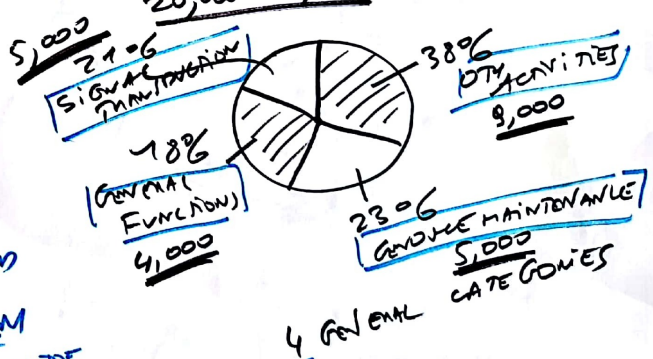 5,000
21%
SIGNAL
TRANSDUCTION
38%
OTH ACTIVITIES
9,000
18%
GENERAL
FUNCTIONS
4,000
23%
GENOME MAINTENANCE
5,000
4 GENERAL CATEGORIES